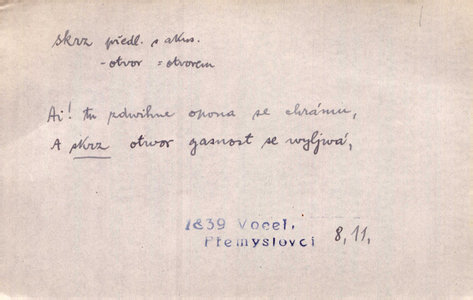 skrz předl. s akus.
-otvor = otvorem
Ai! tu zdwihne opona se chrámu,
A skrz otwor gasnost se wyljwá,
1839 Vocel,
Přemyslovci 8, 11,